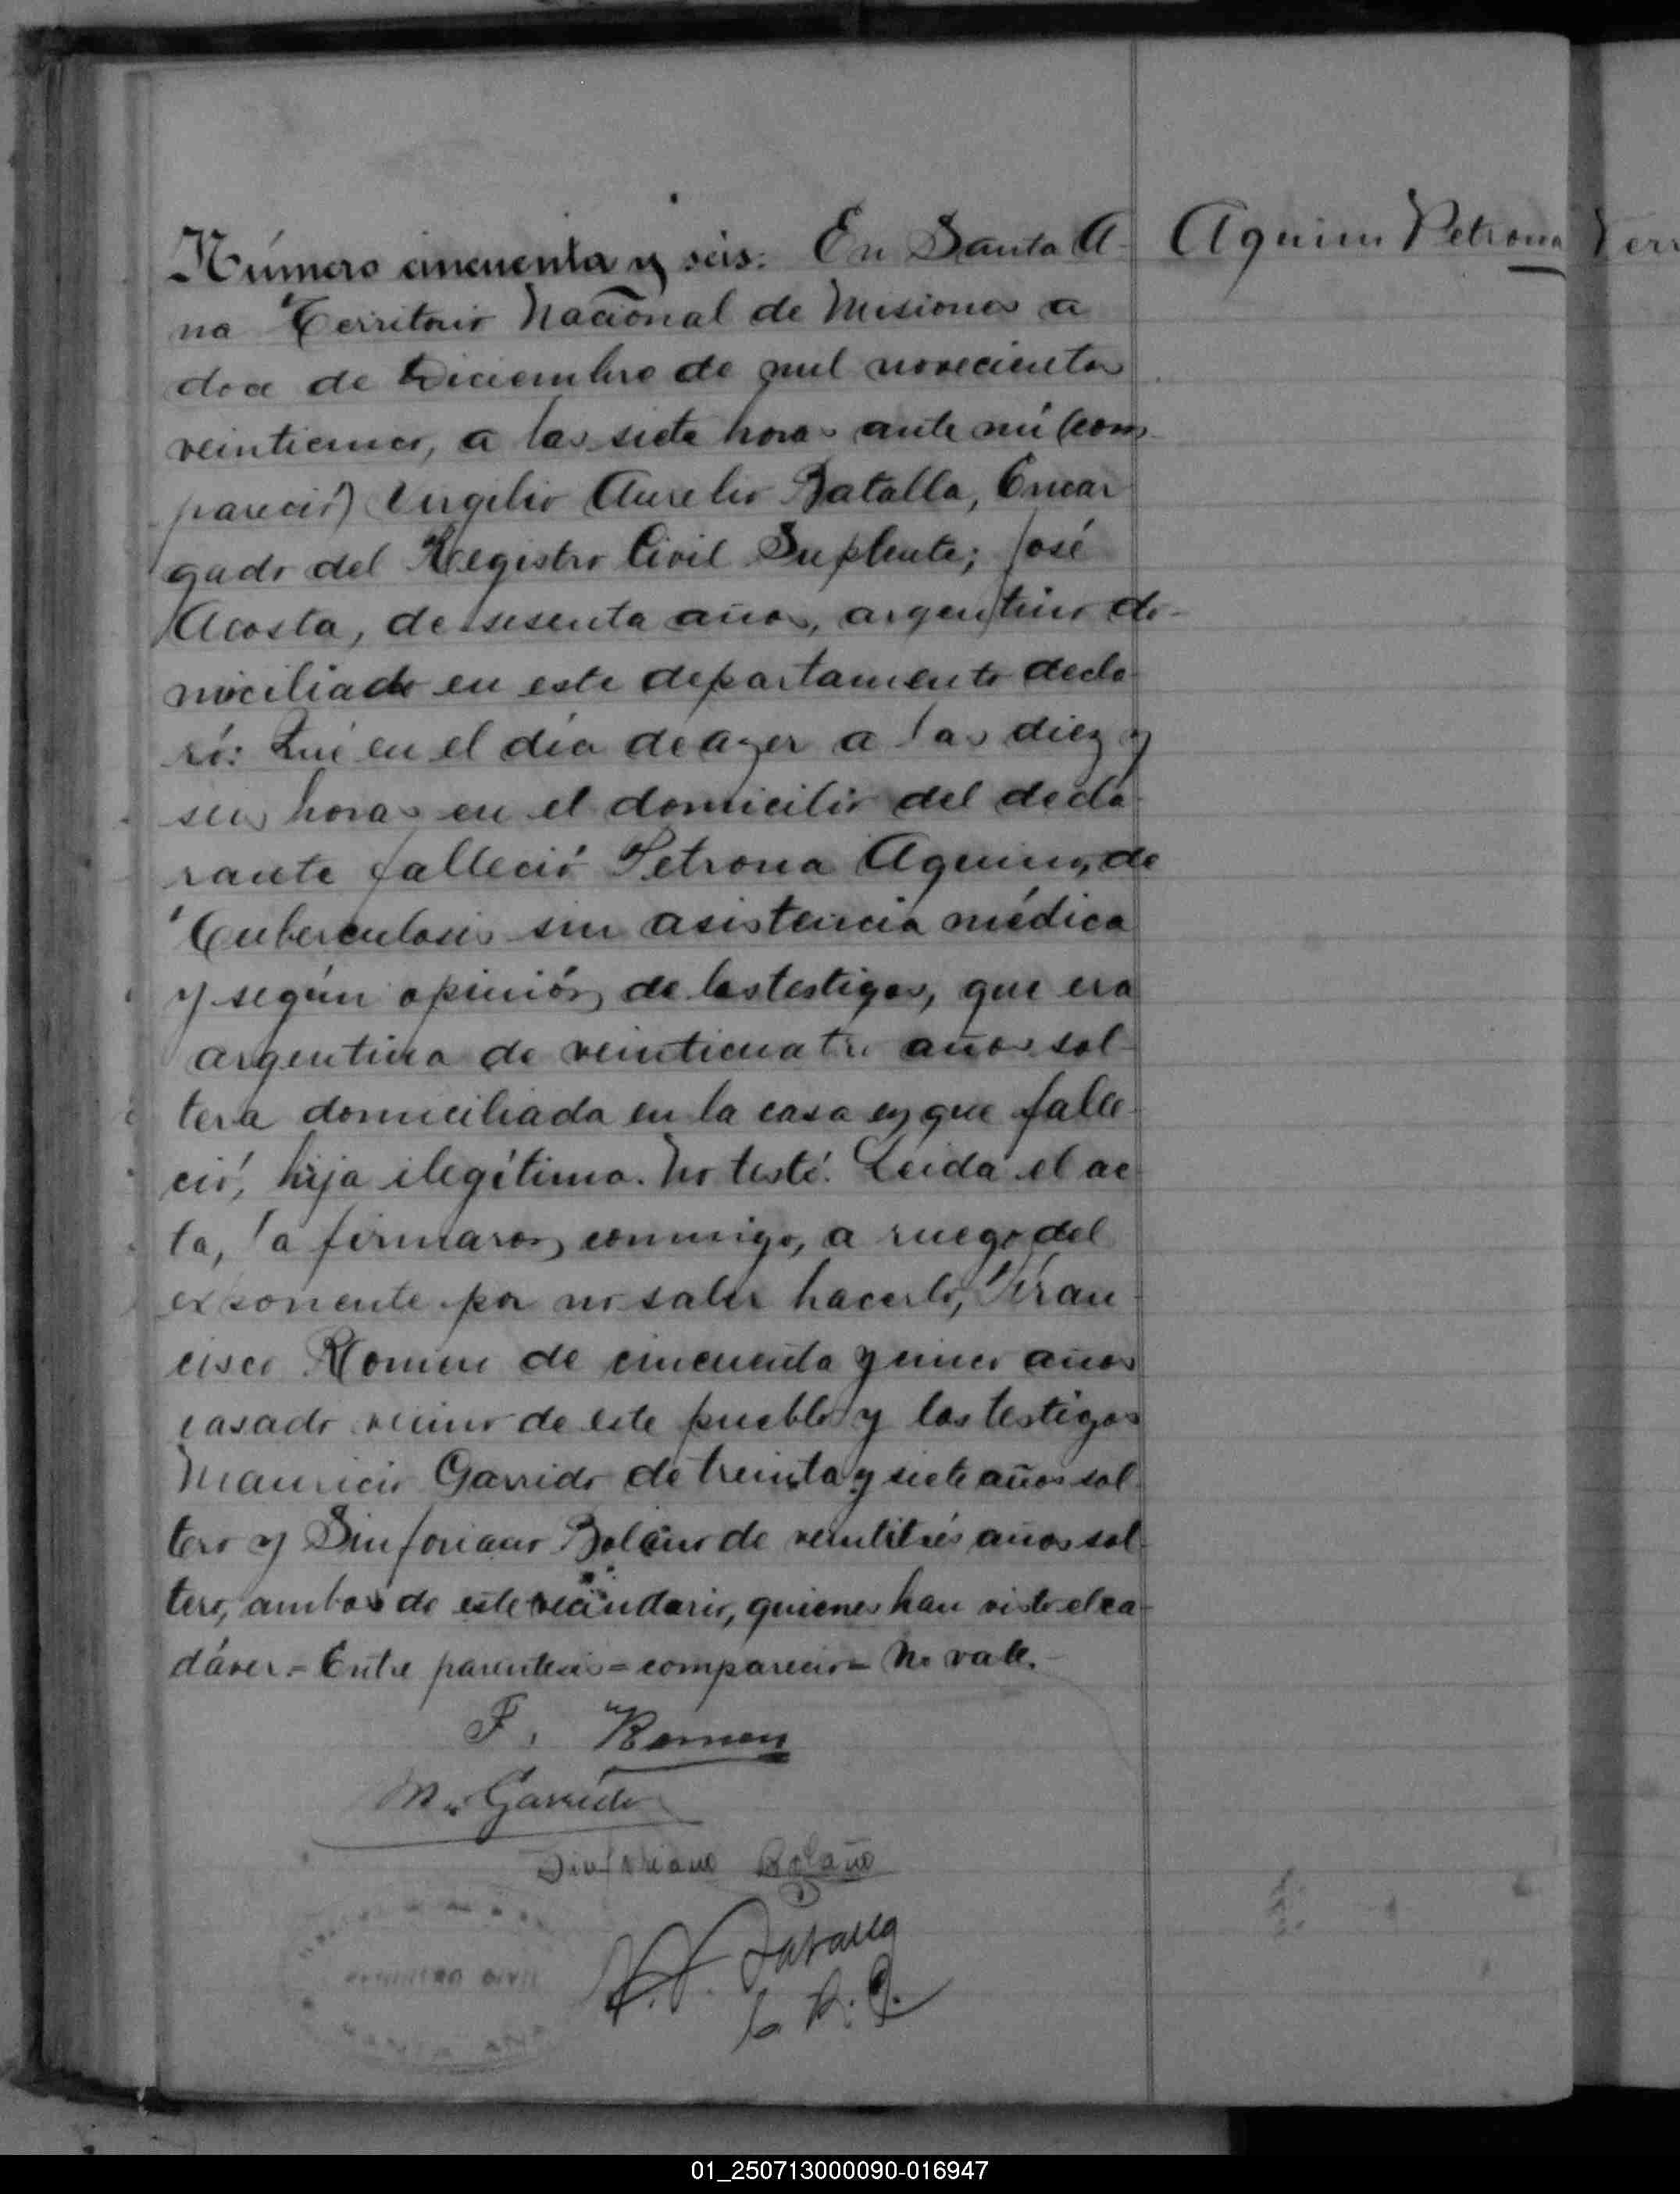 Número cincuenta y seis. En Santa A-
na Territorio Nacional de Misiones a
doce de Diciembre de mil novecientos
veinticinco, a las siete horas ante mí (com-
pareció) Virgilio Aurelio Batalla, Encar
gado del Registro Civil Suplente; José
Acosta, de sesenta años, argentino do-
miciliado en este departamento decla-
ró: Que en el día de ayer a las diez y
seis horas en el domicilio del decla-
rante falleció Petrona Aquino, de
Tuberculosis sin asistencia médica
y según opinión de los testigos, que era
argentina de veinticuatro años sol-
tera domiciliada en la casa en que falle-
ció, hija ilegítima. No testó. Leída el ac-
ta, la firmaron conmigo, a ruego del
exponente por no saber hacerlo, Fran-
cisco Romero de cincuenta y cinco años
casado vecino de este pueblo y los testigos
Mauricio Garrido de treinta y siete años sol-
tero y Sinforiano Bolaño de veintitrés años sol-
tero, ambos de este vecindario, quienes han visto el ca-
dáver.= Entre parentesis=compareció= No vale.
F. Romero
M. Garrido
Sinforiano Bolaño
Batalla
Aquino Petrona
REGISTRO CIVIL
01_250713000090-016947